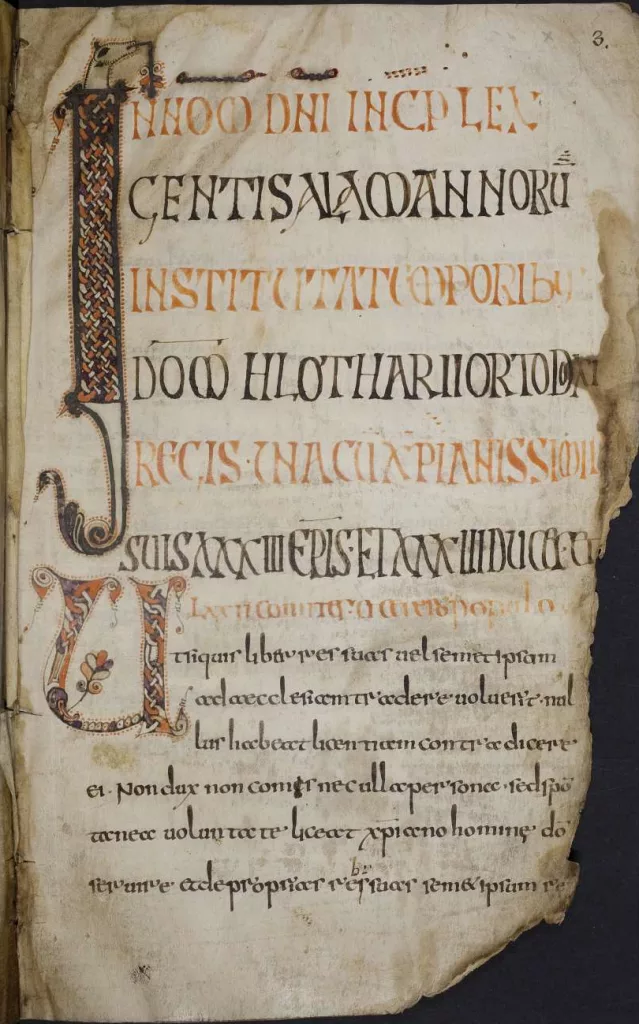 3.
INNOM DNI INCP LEX
GENTIS ALAMANNORU
INSTITUTA TEMPORIBUS
DOM HLOTHARII ORTODOXI
REGIS UNA CU XPIANISSIMIS
SUIS XXXIIII EPIS ET XXXIIII DUCIB ET
LXXII COMITIB
Utsi quis liber res suas uel semetipsam
ad aecclesiam tradere uoluerit nul
lus habeat licentiam contradicere
ei. Non dux non comis nec ulla persona. sed spo
tanea uoluntate liceat xpiano homine do
seruire et de propias res suas semetipsum re
b: